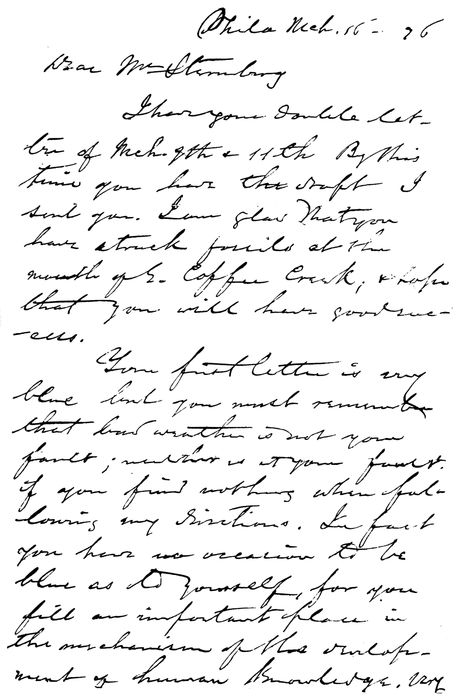 Phila Mch. 15 - 76
Dear Mr Sternberg
I have your double let-
ter of Mch. 9th & 11th By this
time you have the draft I
sent you. I am glad that you
have struck fossils at the
mouth of E. Coffee Creek; & hope
that you will have good suc-
-cess.
Your first letter is very
blue but you must remember
that bad weather is not your
fault; neither is it your fault
if you find nothing when fol-
lowing my directions. In fact
you have no occasion to be
blue as to yourself, for you
fill an important place in
the mechanism of the develop-
ment of human knowledge. Very